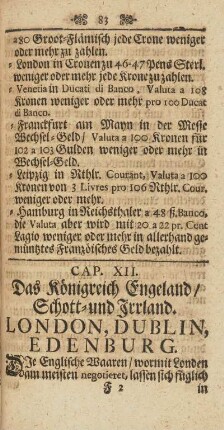 83
280 Groot-Flämisch jede Crone weniger
oder mehr zu zahlen.
- London in Cronen zu 46-47 Pens Sterl.
weniger oder mehr jede Krone zu zahlen.
- Venetia in Ducati di Banco, Valuta a 108
Kronen weniger oder mehr pro 100 Ducat
di Banco.
- Franckfurt am Mayn in der Messe
Wechsel-Geld / Valuta a 100 Kronen für
102 a 103 Gulden weniger oder mehr in
Wechsel-Geld.
- Leipzig in Rthlr. Courant, Valuta a 100
Kronen von 3 Livres pro 106 Rthlr. Cour.
weniger oder mehr.
- Hamburg in Reichsthaler a 48 ß. Banco,
die Valuta aber wird mit 20 a 22 pr. Cent
Lagio weniger oder mehr in allerhand ge-
müntztes Französisches Geld bezahlt.
CAP. XII.
Das Königreich Engeland /
Schott- und Irrland.
LONDON, DUBLIN,
EDENBURG.
DJe Englische Waaren / wormit Londen
am meisten negotieret, lassen sich füglich
F 2 in